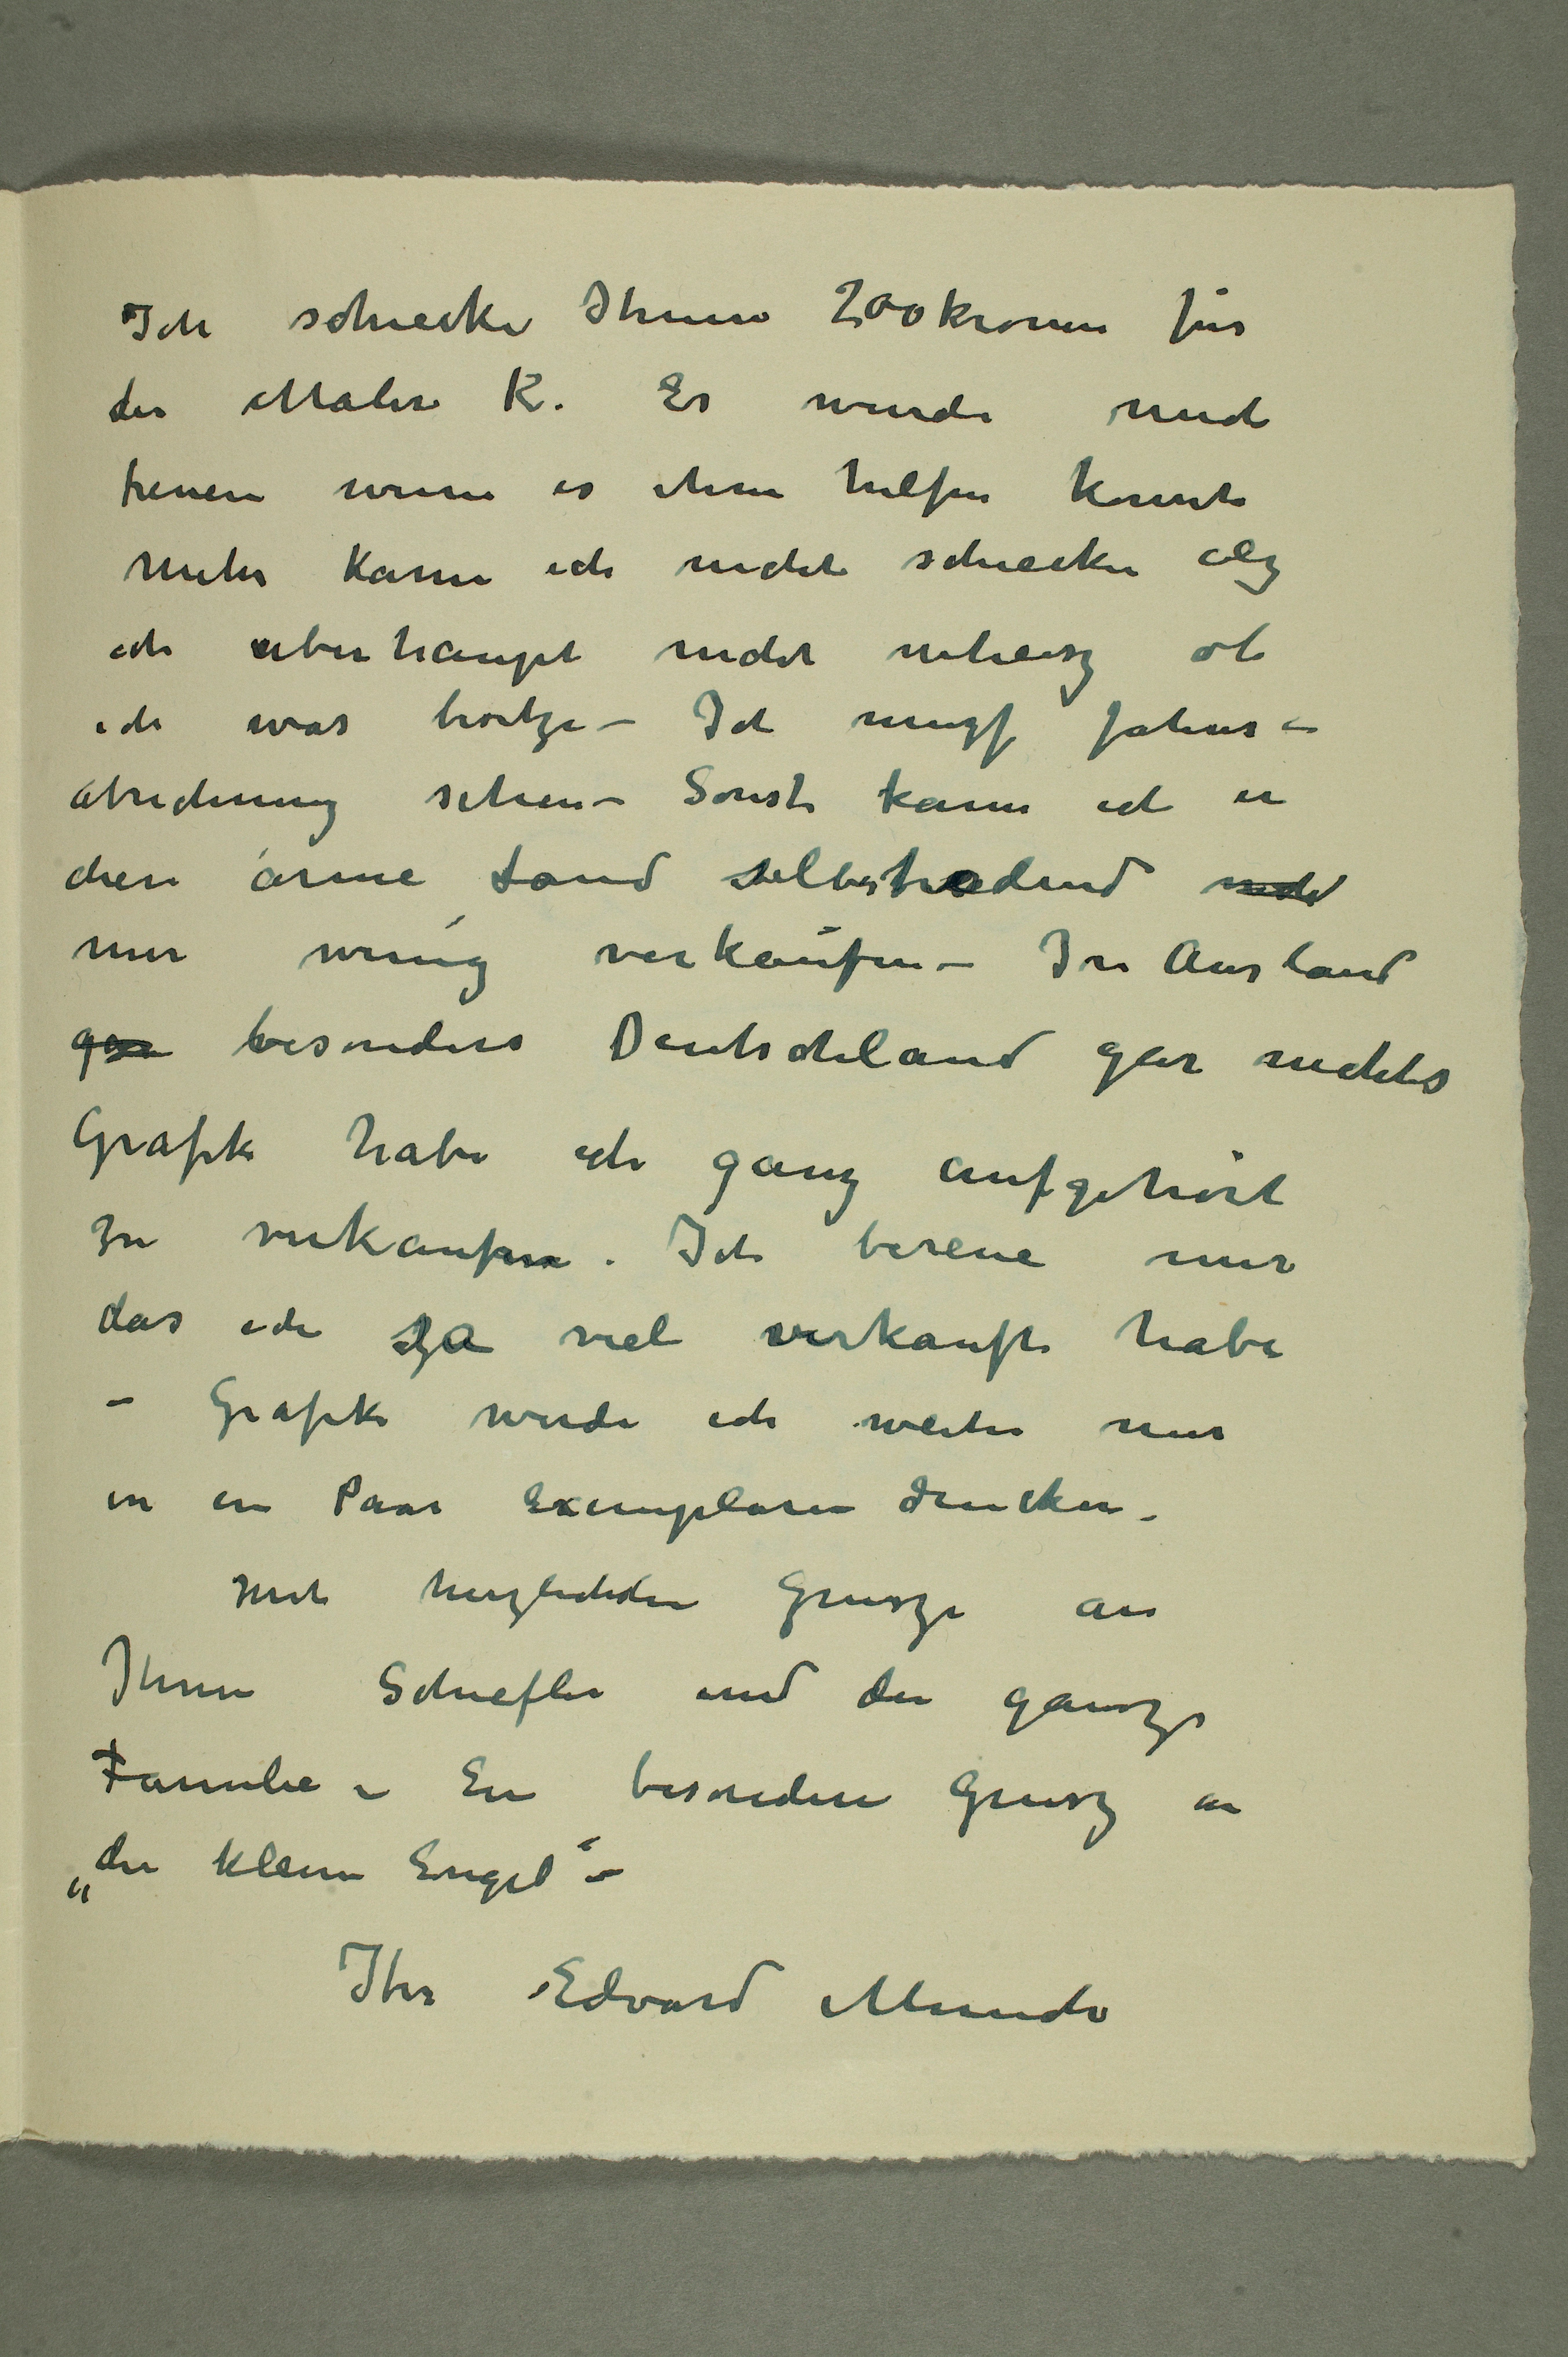 Ich schiecke Ihnen 200 kronen für
der Maler K. Es wurde mich
freuen wenn es ihm helfen konnte
Mehr kann ich nicht schiecken als
ich uberhaupt nicht weisz ob
ich was besitze – Ich musz Jahres –
abrechnung sehen – Sonst kann ich in
dies arme Land selbstredend nicht
nur wenig verkaufen – In Ausland
gar besonders Deutschland gar nichts
Grafik habe ich ganz aufgehört
zu verkaufen. Ich bereue nur
das ich so viel verkauft habe
– Grafik werde ich weiter nur
in ein Paar Exemplaren drucken –
Mit herzlichen Grusze an
Ihnen Schiefler und die ganze
Familie – Ein besonderen Grusz an
„die kleine Engel“ –
Ihr Edvard Munch